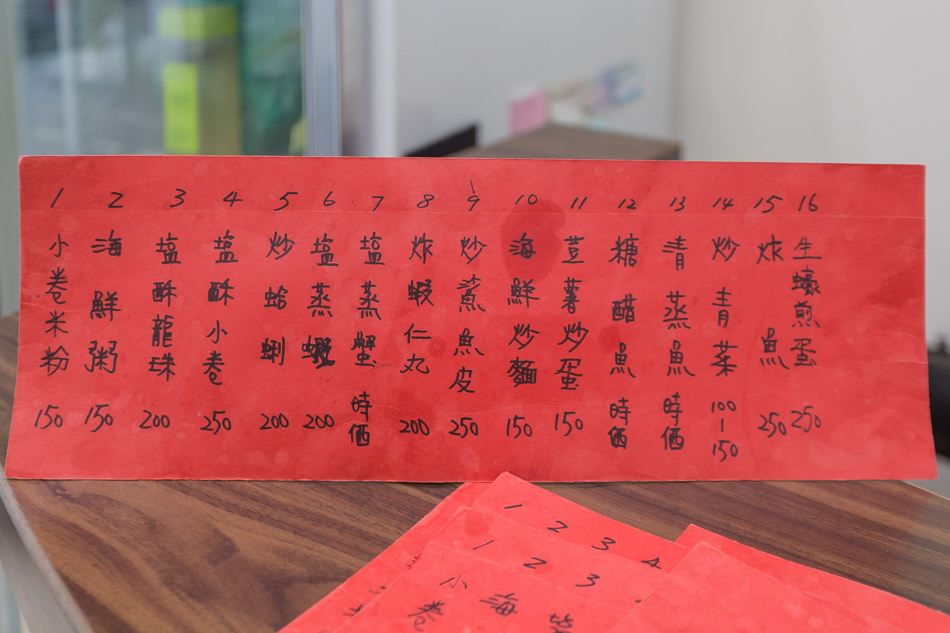 1 小卷米粉 150
2 海鮮粥 150
3 塩酥龍珠 200
4 塩酥小卷 250
5 炒蛤蜊 200
6 塩蒸蝦 200
7 塩蒸蟹 時価
8 炸蝦仁丸 200
9 炒鯊魚皮 250
10 海鮮炒麵 150
11 荳薯炒蛋 150
12 糖醋魚 時価
13 青蒸魚 時価
14 炒青菜 100-150
15 炸魚 250
16 生蠔煎蛋 250
1 2 3 4
1 2 3
小卷
海